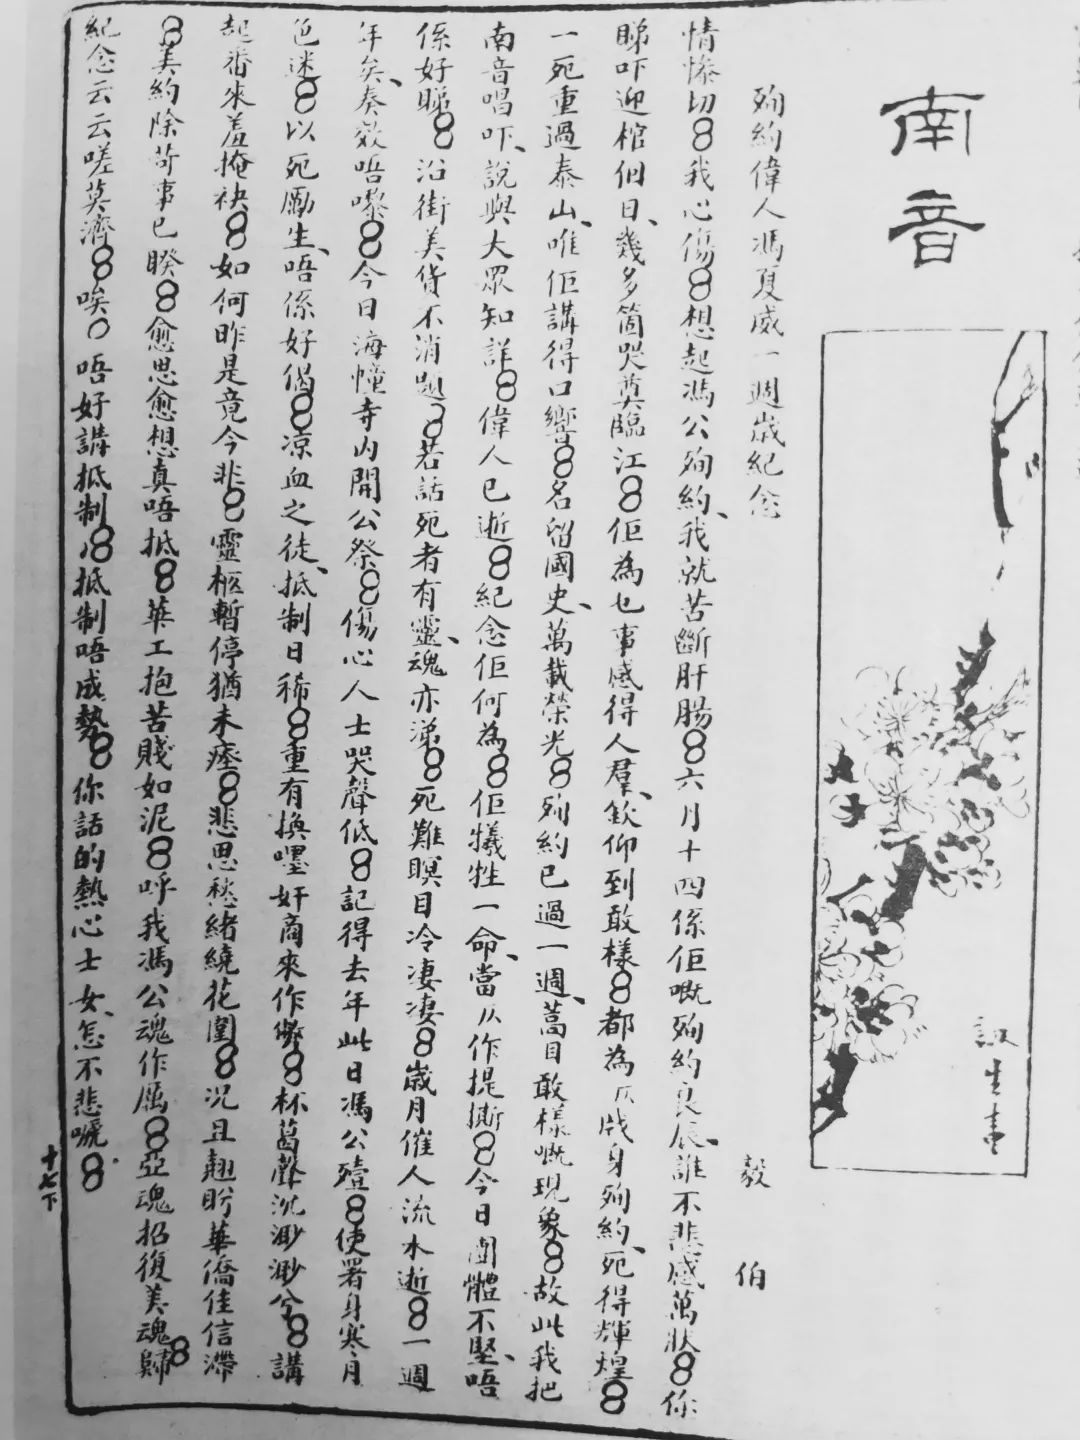 南音
訒生畫
殉約偉人馮夏威一週歲紀念
毅伯
情慘切8我心傷8想起馮公殉約、我就苦斷肝腸8六月十四係佢嘅殉約良辰、誰不悲感萬狀8你
睇吓迎棺個日、幾多箇哭奠臨江8佢為乜事感得人羣、欽仰到敢樣8都為一片戕身殉約、死得輝煌8
一死重過泰山、唯佢講得口響8名留國史、萬載榮光8殉約已過一週、蒿目敢樣嘅現象8故此我把
南音唱吓、說與大眾知詳8偉人已逝8紀念佢何為8佢犧牲一命、當以作提撕8今日團體不堅、唔
係好睇8沿街美貨不消題8若話死者有靈、魂亦涕8死難瞑目冷淒淒8歲月催人流水逝8一週
年矣、奏效唔嚟8今日海幢寺內開公祭8傷心人士哭聲低8記得去年此日馮公殪8使署身寒肓
色迷8以死勵生、唔係好偈8凉血之徒、抵制日稀8重有換嘜奸商來作弊8杯葛聲沉渺渺兮8講
起番來羞掩袂8如何昨是竟今非8靈柩暫停猶未瘞8悲思愁緒繞花圍8況且翹盼華僑佳信滯
8美約除苛事已睽8愈思愈想真唔抵8華工抱苦賤如泥8呼我馮公魂作厲8亞魂招復美魂歸8
紀念云云嗟莫濟8唉○唔好講抵制8抵制唔成勢8你話的熱心士女、怎不悲嗁8
十七下